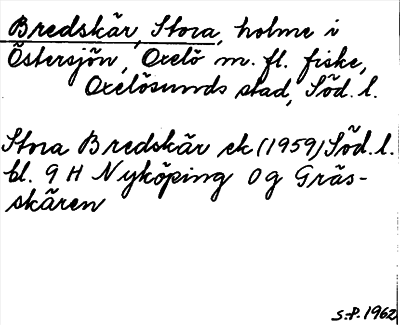 Bredskär, Stora, holme i
Östersjön, Oxelö m. fl. fiske,
Oxelösunds stad, Söd. l.
Stora Bredskär ek (1959) Söd. l.
bl. 9 H Nyköping 0g Gräs-
skären
S.P. 1962